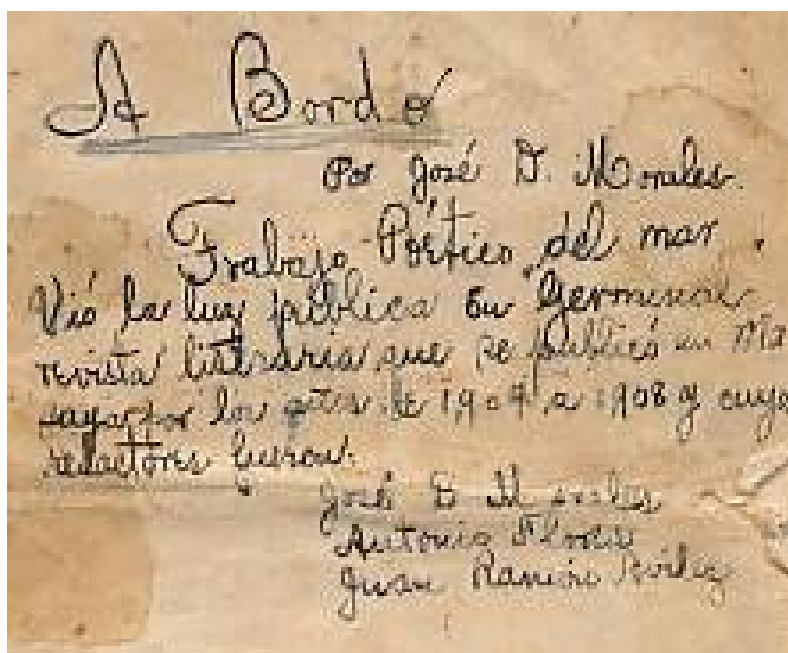 A Bordo
Por José D. Morales.
Trabajo Poético del mar.
Vió la luz pública en Germinal
revista literaria que se publicó en Ma
por los de 1907 a 1908 y cuyo
redactores fueron.
José D Morales
Antonio Flores
Juan Ramón